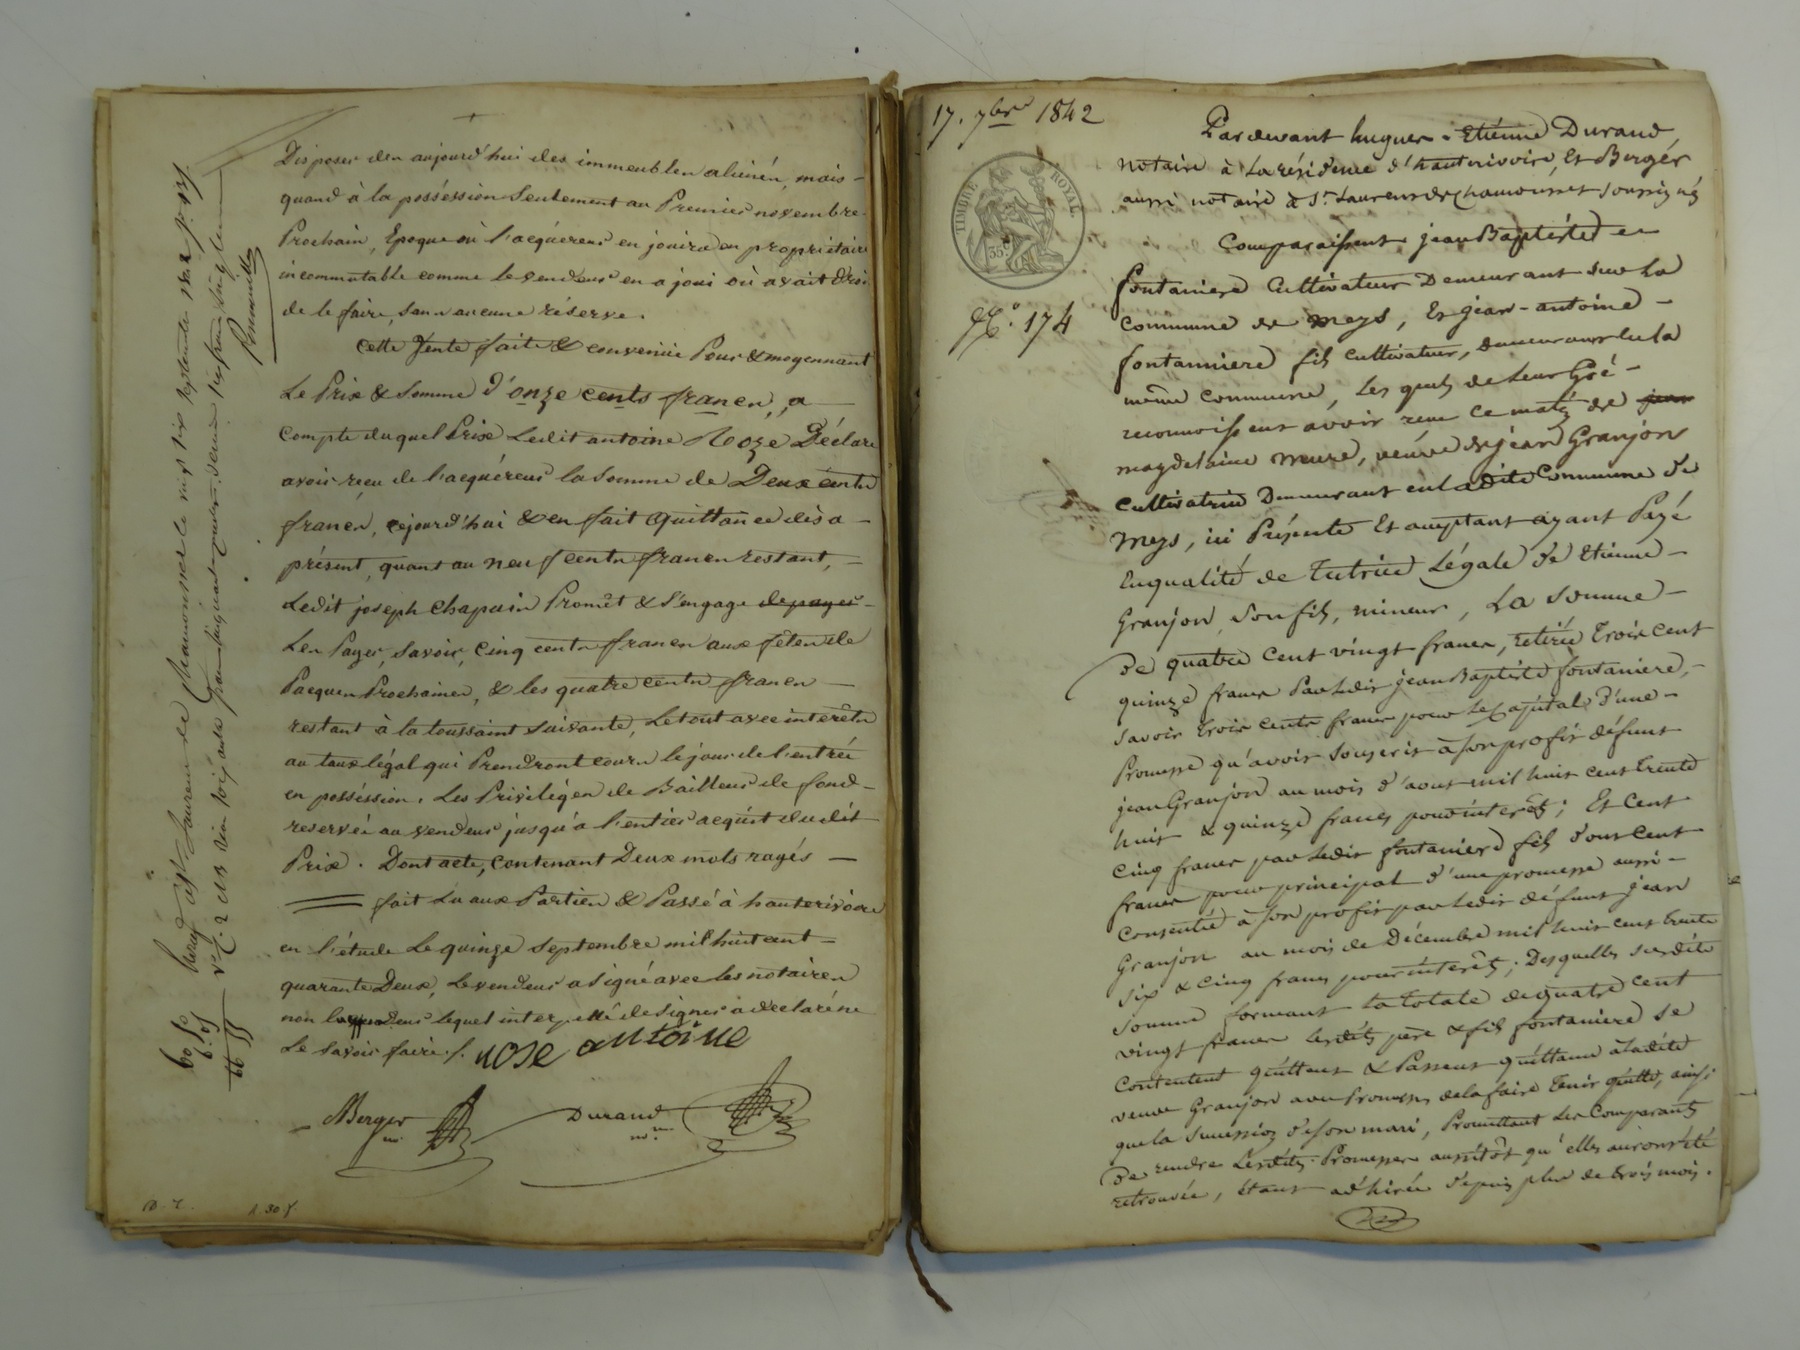 Disposer des aujourd'hui des immeubles alienés, mais
quand à la posséssion seulement au Premier novembre
Prochain, Epoque où l'acquéreur en jouira en propriétaire
incommutable comme le vendeur en a joui où avait droit
de le faire, sans aucune réserve.
Cette Vente faite & convenüe Pour & moyennant
Le Prix & Somme d'onze cents francs, a
compte duquel Prix Ledit antoine Noze Déclare
avoir reçu de l'acquéreur la somme de Deux cents
francs, cejourd'hui & en fait Quittance dès a
présent, quant au neuf cents francs restant,
Ledit joseph Chapuin Promêt & s'engage de payer
Les Payer, savoir, Cinq cents francs aux fêtes de
Pacques Prochaines, & les quatre cents francs
restant à la toussaint suivante, Le tout avec interêts
au taux légal qui Prendront cours le jour de l'entrée
en posséssion. Les Privilèges de Bailleur de fond
reservés au vendeur jusqu'à l'entier acquit du dit
Prix. Dont acte, contenant Deux mots rayés
fait Lu aux Parties & Passé à hauterivoire
en l'étude Le quinze septembre mil huit cent
quarante Deux, Le vendeur a signé avec les notaires
non lequel interpellé de signer a déclaré ne
Le savoir faire ./.
nose antoine
Berger nre
Durand nre
17. 7bre 1842
TIMBRE ROYAL
35c
No. 174
Pardevant hugues - Etiénne Durand,
notaire à La résidence d'hauterivoire, Et Bergér
aussi notaire à St. Laurent de Chamousset soussignés
Comparaissent jean Baptiste
fontaniere Cultivateur Demeurant sur La
Commune de Meys, Et jean-antoine
fontanniere fils cultivateur, demeurant sur la
même Commune, Les quels de leur Gré
reconnoissent avoir reçu ce matin de jean
magdelaine meure, veuve de jean Granjon
Cultivatrice Demeurant en la dite Commune de
Meys, ici Présente Et acceptant ayant Payé
En qualité de Tutrice Légale de Etienne
Granjon, Son fils, mineur, La somme
De quatre cent vingt francs, retirée Trois cent
quinze francs Par Ledit jean Baptiste fontaniere,
Savoir Trois cents francs pour Le Capital d'une
Promesse qu'avoit souscrit à son profit défunt
jean Granjon au mois d'aout mil huit cent trente
huit & quinze francs pour intérêts; Et Cent
Cinq francs par Ledit fontaniere fils dont cent
francs pour principal d'une promesse aussi
Consentie à son profit par Ledit défunt jean
Granjon au mois de Décembre mil huit cent trente
Six & cinq francs pour intérêts; Desquelles susdite
Somme formant La totale de quatre cent
vingt francs Lesdits père & fils fontaniere se
Contentent quittent & Passent quittance à Ladite
veuve Granjon avec Promesse de la faire Tenir quitte, ainsi
que la Succession de son mari, Promettant Les Comparants
De rendre Lesdites Promesses aussitôt qu'elles auront été
retrouvée, étant adhirée depuis plus de trois mois.